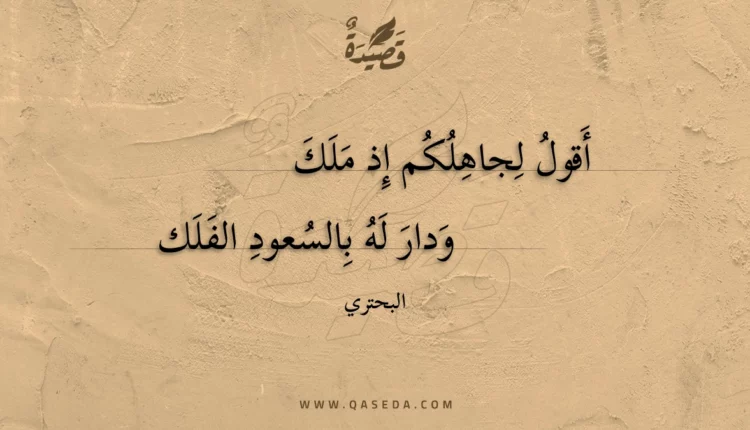 قَصِيْدَةٌ
أَقولُ لِجاهِلُكُم إِذ مَلَكَ
وَدارَ لَهُ بِالسُعودِ الفَلَك
البحتري
WWW.QASEDA.COM